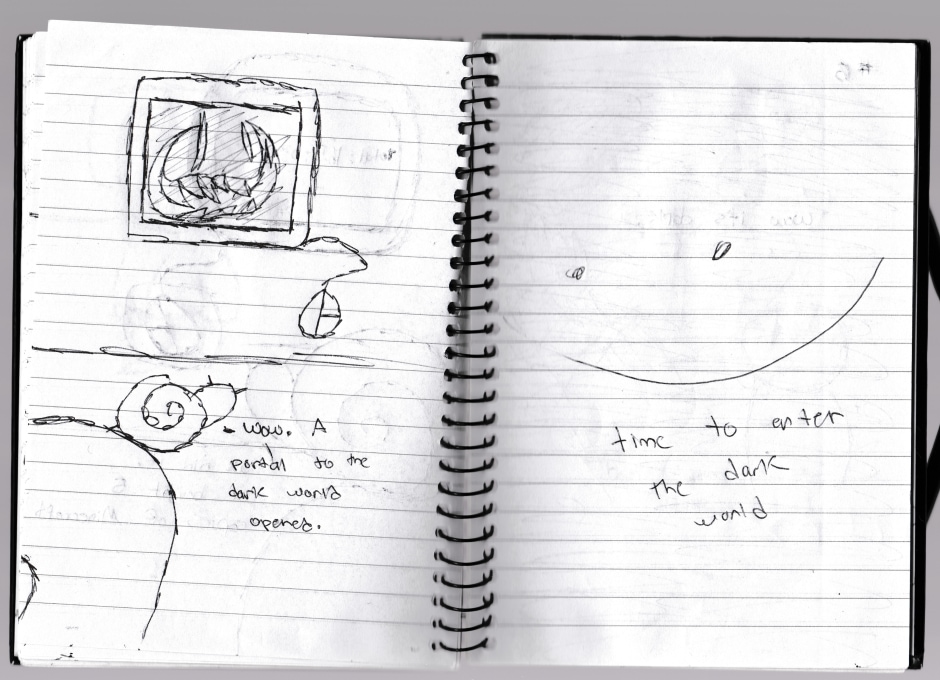 - wow. A
portal to the
dark world
opened.
time to enter
the dark
world